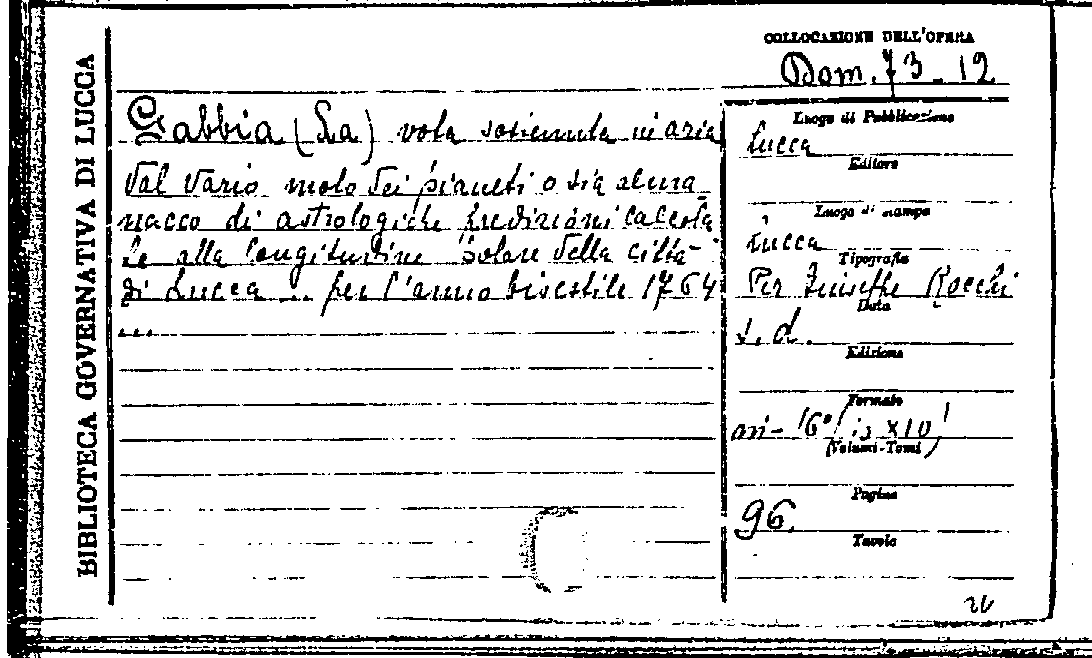 BIBLIOTECA GOVERNATIVA DI LUCCA
COLLOCAZIONE DELL'OPERA
Dom. 73-12
Gabbia (La) vota sostenuta in aria
dal vario moto dei pianeti o sia alma
nacco di astrologiche predizioni calcola
te alla longitudine solare della città
di Lucca ... per l'anno bisestile 1764
...
Luogo di Pubblicazione
Lucca
Editore
Luogo di stampa
Lucca
Tipografia
Per Giuseppe Rocchi
Data
s. d.
Edizione
Formato
in-16° (15 x 10)
(Volumi-Tomi)
Pagine
96.
Tavole